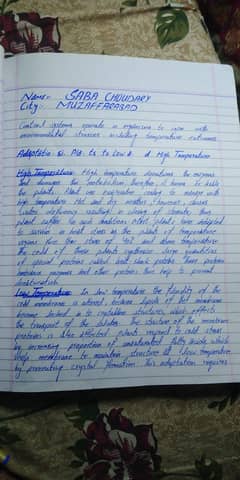 Name:- SABA CHOUDARY
City:- MUZAFFARABAD
Control systems operate in organisms to cope with
environmental stresses including temperature extremes.
Adaptation of Plants to Low & High Temperature
High Temperature: High temperature denatures the enzymes
and damages the metabolism therefore it harms to kills
the plants. Plant use evaporative cooling to manage with
high temperature. Hot and dry weather however, causes
water deficiency resulting in closing of stomata, thus
plant suffer in such conditions. Most plants have adapted
to survive in heat stress as the plants of temperate
regions face the stress of 40°C and above temperature
The cells of these plants synthesize large quantities
of special proteins called heat shock proteins. These proteins
embrace enzymes and other proteins thus help to prevent
denaturation.
Low Temperature: In low temperature the fluidity of the
cell membrane is altered, because lipids of the membrane
become locked in to crystalline structures, which affects
the transport of the solutes. The structure of the membrane
proteins is also affected. plants respond to cold stress
by increasing proportion of unsaturated fatty acids, which
help membrane to maintain structure at low temperature
by preventing crystal formation. This adaptation requires